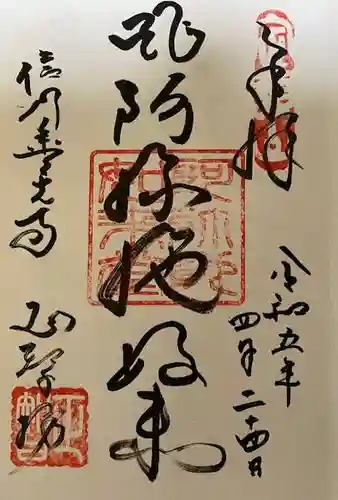 奉拝
令和五年
四月二十四日
阿弥陀如来
信州善光寺